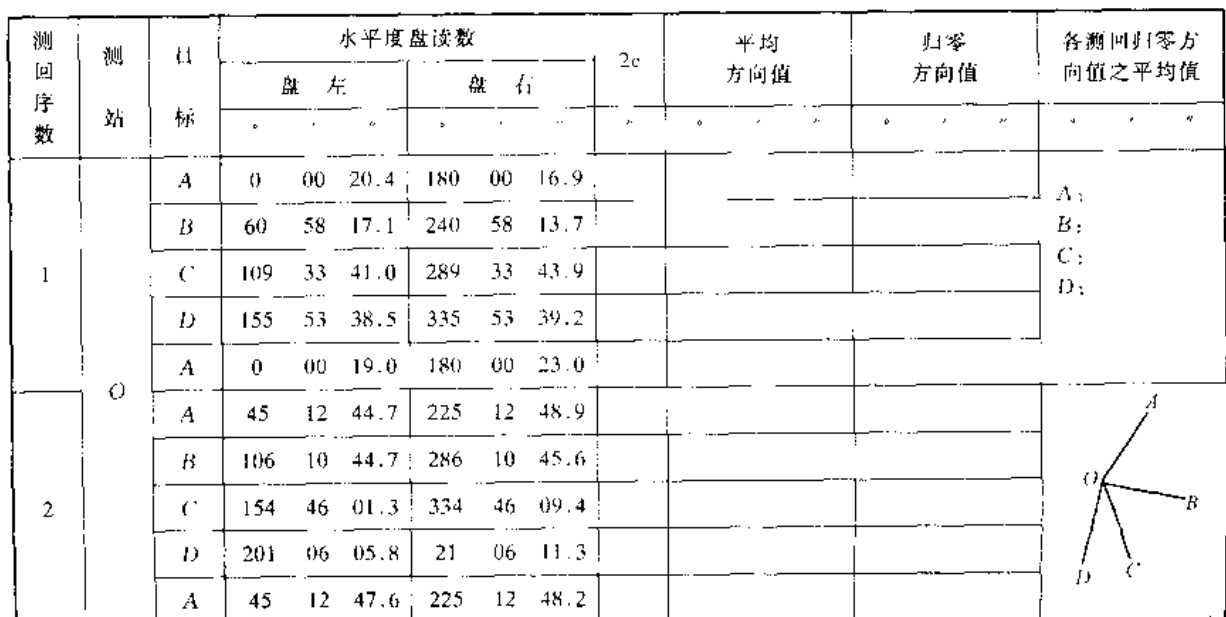 测回序数 测站 目标 水平度盘读数 2c 平均方向值 归零方向值 各测回归零方向值之平均值
盘 左 盘 右
° ′ ″ ° ′ ″ ″ ° ′ ″ ° ′ ″ ° ′ ″
1 O A 0 00 20.4 180 00 16.9 A:
B 60 58 17.1 240 58 13.7 B:
C 109 33 41.0 289 33 43.9 C:
D 155 53 38.5 335 53 39.2 D:
A 0 00 19.0 180 00 23.0
2 A 45 12 44.7 225 12 48.9
B 106 10 44.7 286 10 45.6
C 154 46 01.3 334 46 09.4
D 201 06 05.8 21 06 11.3
A 45 12 47.6 225 12 48.2
A
O
B
D C